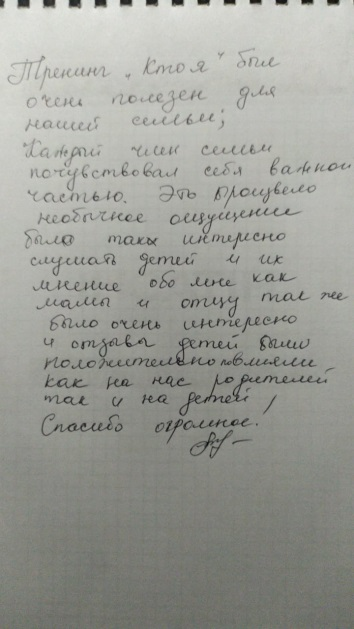 Тренинг „Кто я" был
очень полезен для
нашей семьи;
Каждый член семьи
почувствовал себя важной
частью. Это произвело
необычное ощущение
было также интересно
слушать детей и их
мнение обо мне как
мамы и отцу так же
было очень интересно
и отзывы детей были
положительно повлияли
как на нас родителей
так и на детей!
Спасибо огромное.